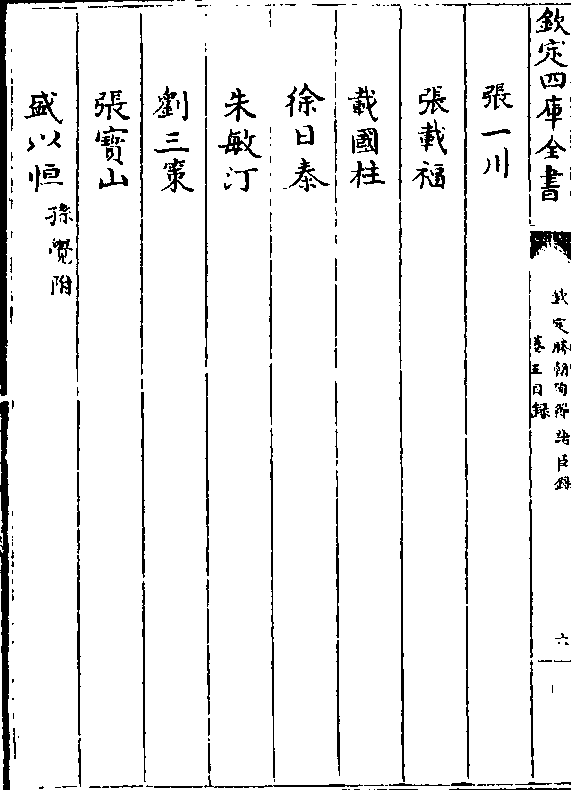 欽定四庫全書
欽定勝朝殉節諸臣録
卷五目録
六
張一川
張載福
載國柱
徐日泰
朱敏汀
劉三策
張寶山
盛以恒
孫覺附